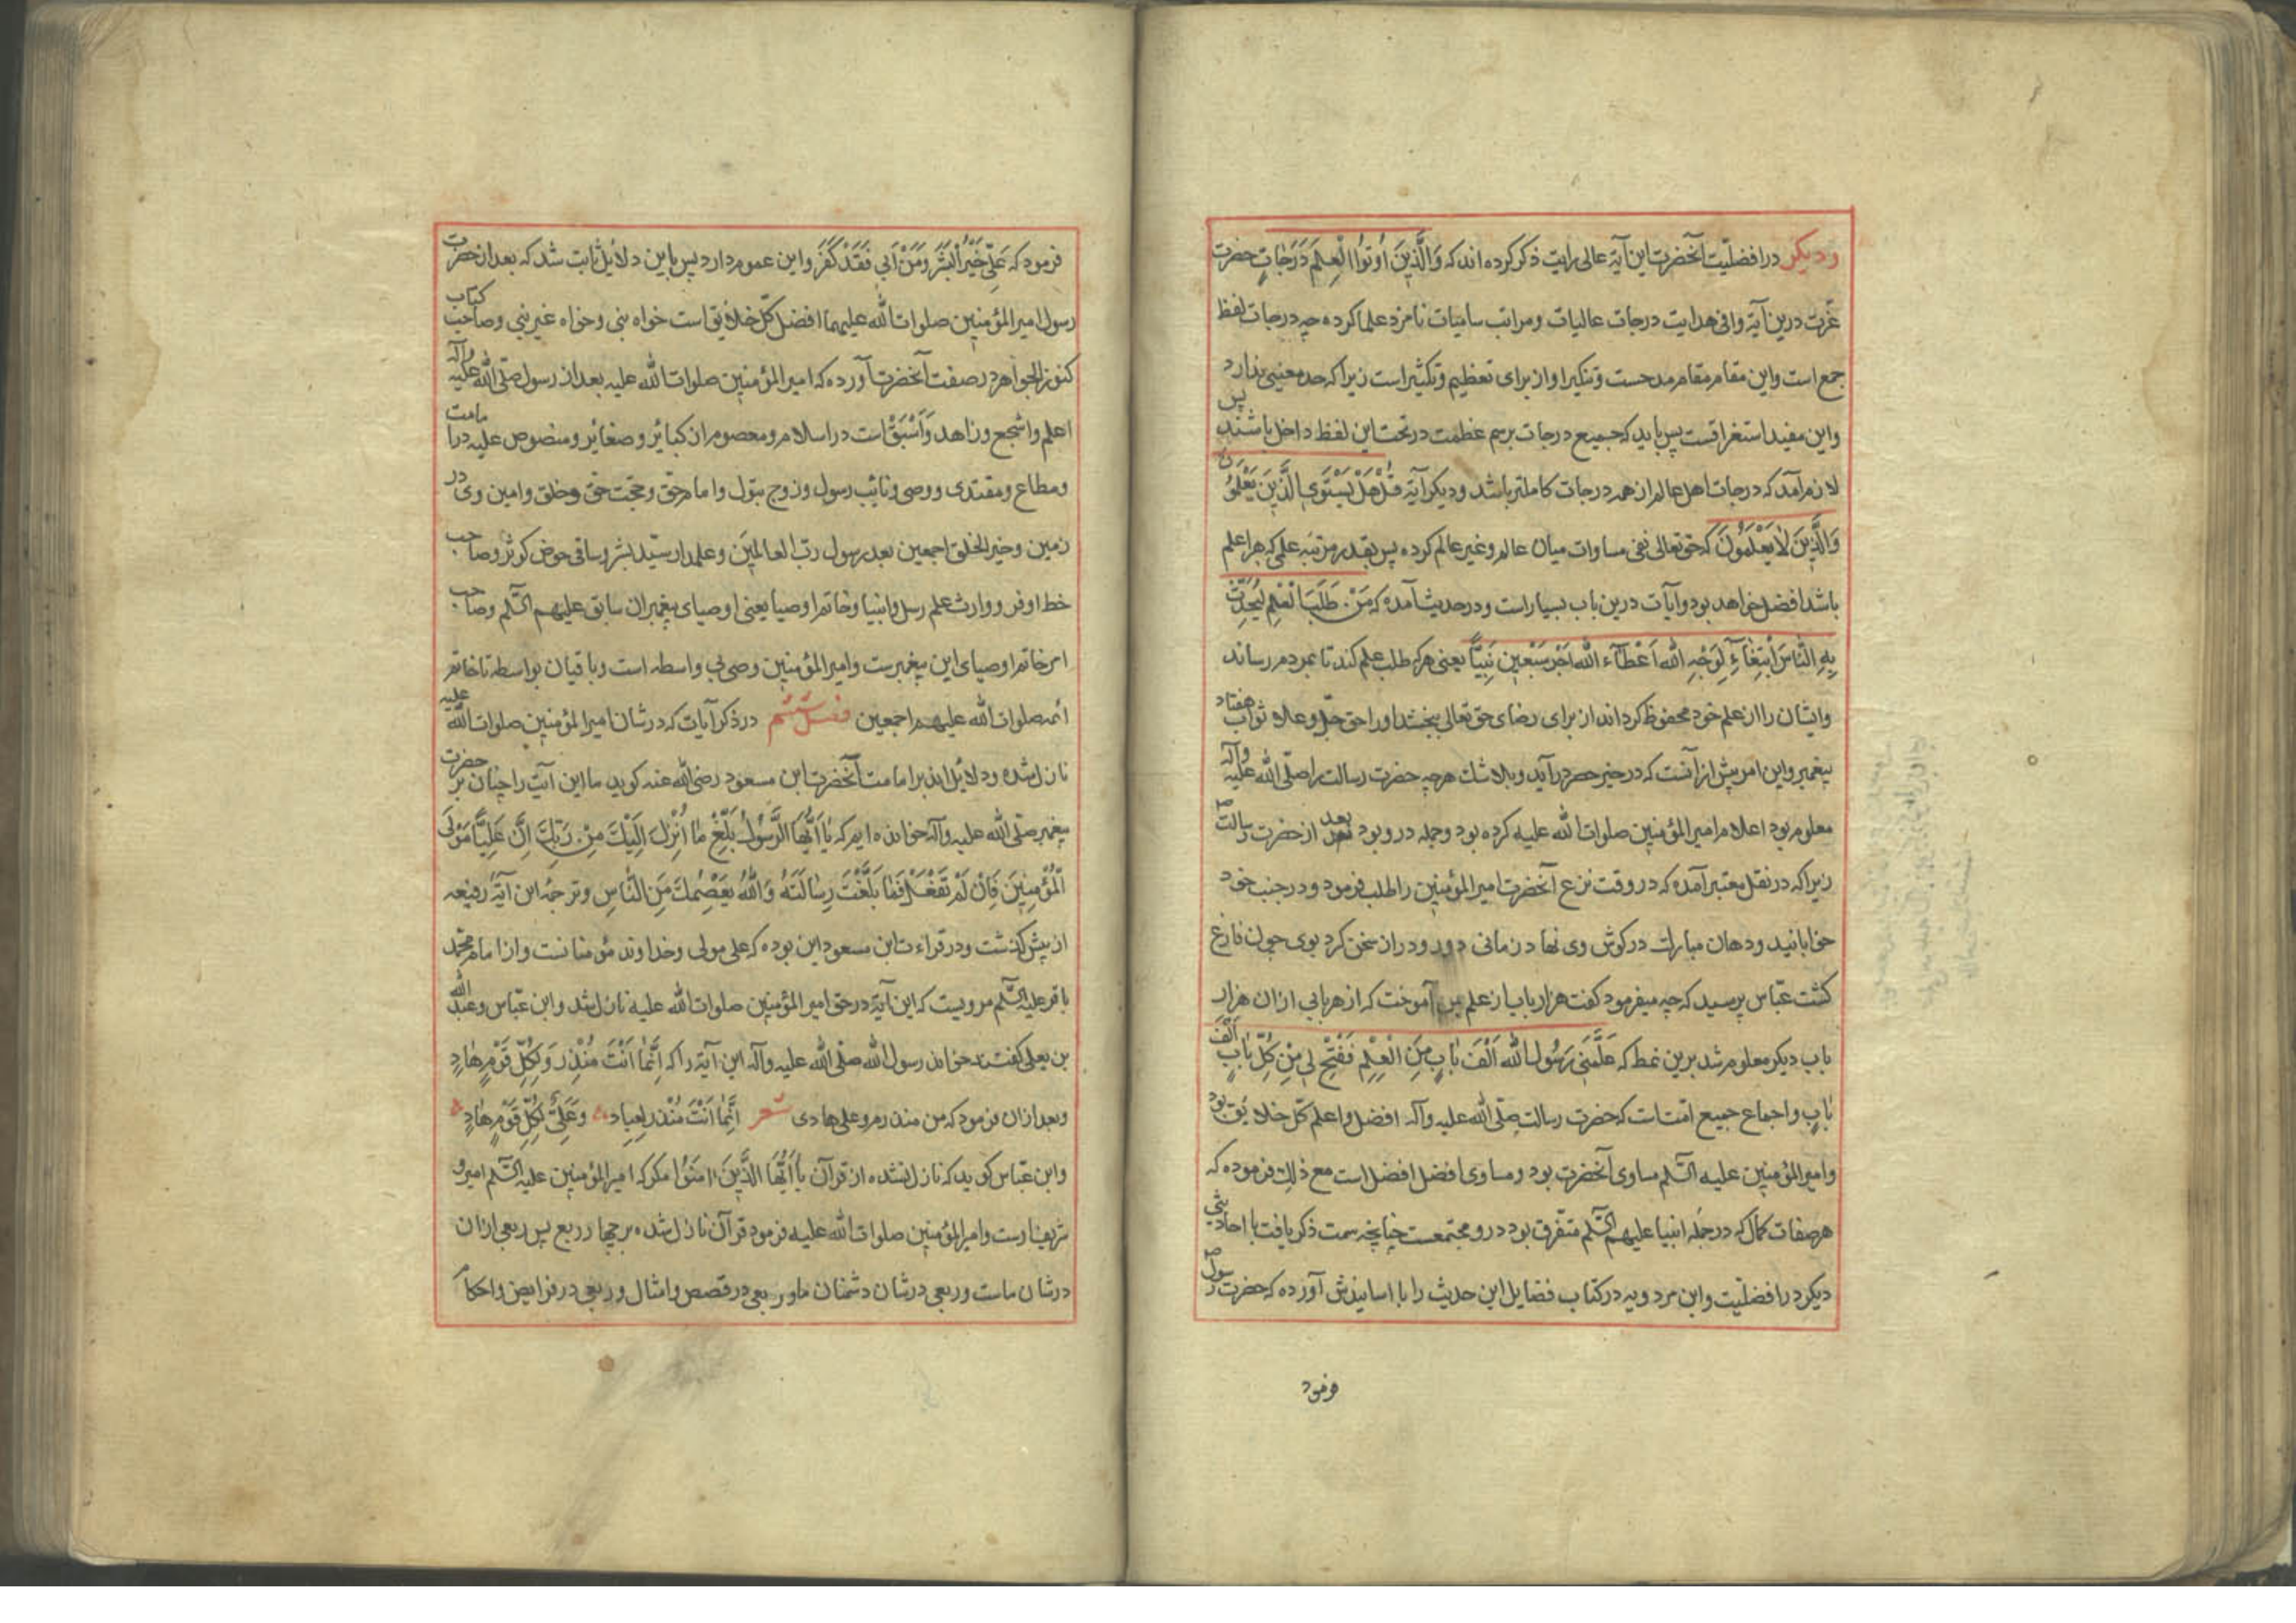 ودیکر در افضلیت آنحضرت این آیۀ عالی رایت ذکر کرده اند که وَالَّذِینَ اُوتُوا الْعِلمَ دَرَجَاتٍ حضرت
عزّت درین آیۀ وافی هدایت درجات عالیات ومراتب سامیات نامزد علما کرده چه درجات لفظ
جمع است واین مقام مقام مدحست وتنکیر او از برای تعظیم وتکثیر است زیرا که حد معینی ندارد
واین مفید استغراقست پس باید که جمیع درجات برسم عظمت در تحت این لفظ داخل باشند پس
لازم آمد که درجات اهل عالم از همه درجات کاملتر باشد ودیکر آیۀ قُلْ هَلْ یَسْتَوِی الَّذِینَ یَعْلَمُونَ
وَالَّذِینَ لَا یَعْلَمُونَ که حق تعالی نفی مساوات میان عالم وغیر عالم کرده پس بقدر مرتبه علمی که هر اعلم
باشد افضل خواهد بود وآیات درین باب بسیار است ودر حدیث آمده که مَنْ طَلَبَ الْعِلمَ لِیُحَدِّثَ
بِهِ النَّاسَ ابْتِغَآءً لِوَجْهِ اللّٰه اَعْطَآءَ اللّٰه اَجْرَ سَبْعِینَ نَبِیًّا یعنی هر که طلب علم کند تا بمردم رساند
وایشان را از علم خود محفوظ کرداند از برای رضای حق تعالی ببخشد او را حق جلّ وعلا ثواب هفتاد
پیغمبر واین امر بیش از آنست که در خیر حصر درآید وبلاشک هر چه حضرت رسالت را صلّی اللّٰه علیه وآله
معلوم بود اعلام امیر المؤمنین صلوات اللّٰه علیه کرده بود وجمله درو بود بعد از حضرت رسالت ص
زیرا که در نقل معتبر آمده که در وقت نزع آنحضرت امیر المؤمنین را طلب فرمود ودر جنب خود
خوابانید ودهان مبارک در کوش وی نهاد زمانی دور ودراز سخن کرد بوی چون فارغ
کشت عبّاس پرسید که چه میفرمود کفت هزار باب از علم بمن آموخت که از هر بابی از ان هزار
باب دیکر معلوم شد برین نمط که عَلَّمَنِی رَسُولُ اللّٰه اَلْفَ بَابٍ مِنَ الْعِلْمِ فَفُتِحَ لِی مِنْ کُلِّ بَابٍ اَلْفَ
بَابٍ واجماع جمیع امّت است که حضرت رسالت صلّی اللّٰه علیه وآله افضل واعلم کلّ خلایق بود
وامیر المؤمنین علیه السّلم مساوی آنحضرت بود ومساوی افضل افضل است مع ذلک فرموده که
هر صفات کمال که در جمله انبیا علیهم السّلم متفرق بود درو مجتمعست چنانچه سمت ذکر یافت با احادیثی
دیکر در افضلیّت وابن مردویه در کتاب فضایل این حدیث را با اسانیدش آورده که حضرت رسول ص
فرمود
فرمود که عَلِیٌّ خَیْرُ الْبَشَرِ وَمَنْ اَبَی فَقَدْ کَفَرَ واین عموم دارد پس باین دلایل ثابت شد که بعد از حضرت
رسول امیر المؤمنین صلوات اللّٰه علیهما افضل کلّ خلایق است خواه نبی وخواه غیر نبی وصاحب کتاب
کنوز الجواهر در صفت آنحضرت آورده که امیر المؤمنین صلوات اللّٰه علیه بعد از رسول صلّی اللّٰه علیه وآله
اعلم واشجع وزاهد وَاَسْبَقْ است در اسلام ومعصوم از کبائر وصغائر ومنصوص علیه در امامت
ومطاع ومقتدی ووصی ونائب رسول وزوج بتول وامام حق وحجّت حق وخلق وامین وی در
زمین وخیر الخلق اجمعین بعد رسول ربّ العالمین وعلمدار سیّد بشر وساقی حوض کوثر وصاحب
خط اوفر ووارث علم رسل وانبیا وخاتم اوصیا یعنی اوصیای پیغمبران سابق علیهم السّلم وصاحب
امر خاتم اوصیای این پیغمبرست وامیر المؤمنین وصی بی واسطه است وباقیان بواسطه تا خاتم
ائمه صلوات اللّٰه علیهم اجمعین فصل ششم در ذکر آیات که در شان امیر المؤمنین صلوات اللّٰه علیه
نازل شده ودلائل اند بر امامت آنحضرت ابن مسعود رضی اللّٰه عنه کوید ما این آیت را چنان بر حضرت
پیغمبر صلّی اللّٰه علیه وآله خوانده ایم که یَا اَیُّهَا الرَّسُولُ بَلِّغْ مَا اُنْزِلَ اِلَیْكَ مِنْ رَبِّكَ اِنَّ عَلِیًّا مَوْلَی
الْمُؤْمِنِینَ فَاِنْ لَمْ تَفْعَلْ فَمَا بَلَّغْتَ رِسَالَتَهُ وَاللّٰهُ یَعْصِمُكَ مِنَ النَّاسِ وترجمه این آیۀ رفیعه
از پیش کذشت ودر قراءت ابن مسعود این بوده که علی مولی وخداوند مؤمنانست واز امام محمّد
باقر علیه السّلم مرویست که این آیة در حق امیر المؤمنین صلوات اللّٰه علیه نازل شد وابن عبّاس وعبد اللّٰه
بن یعلی کفتند خواند رسول اللّٰه صلّی اللّٰه علیه وآله این آیة را که اِنَّمَا اَنْتَ مُنْذِرٌ وَلِکُلِّ قَوْمٍ هَادٍ
وبعد از ان فرمود که من منذرم وعلی هادی شعر اِنَّمَا اَنْتَ مُنْذِرٌ لِعِبَادٍ وَعَلِیٌّ لِکُلِّ قَوْمٍ هَادٍ
وابن عبّاس کوید که نازل نشده از قرآن یَا اَیُّهَا الَّذِینَ اٰمَنُوا مکر که امیر المؤمنین علیه السّلم امیر و
شریف آنست وامیر المؤمنین صلوات اللّٰه علیه فرمود قرآن نازل شده بر چهار ربع پس ربعی از ان
در شان ماست وربعی در شان دشمنان ما وربعی در قصص وامثال وربعی در فرایض واحکام